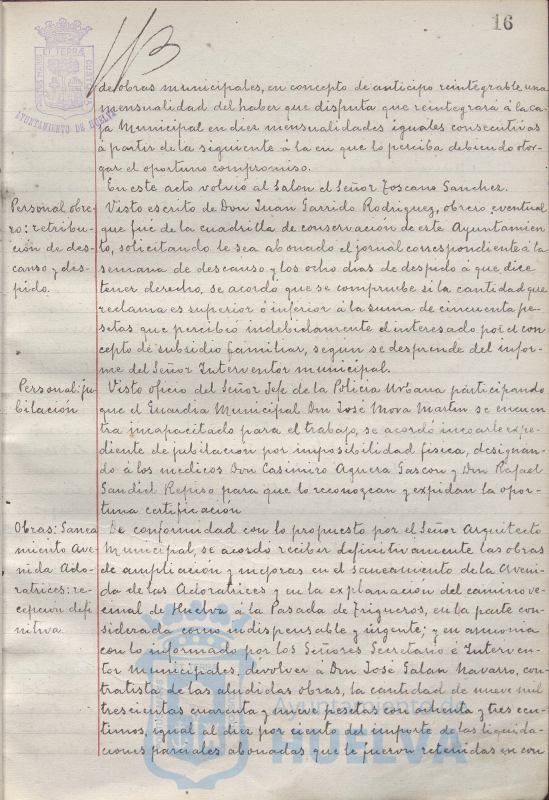 16
AYUNTAMIENTO DE HUELVA
de obras municipales, en concepto de anticipo reintegrable una
mensualidad del haber que disfruta que reintegrará á la ca-
ja Municipal en diez mensualidades iguales consecutivas
á partir de la siguiente á la en que lo perciba debiendo otor-
gar el oportuno compromiso.
En este acto volvió al Salon el Señor Toscano Sanchez.
Personal obre-
ro: retribu-
ción de des-
canso y des-
pido.
Visto escrito de Don Juan Garrido Rodriguez, obrero eventual
que fué de la cuadrilla de conservación de este Ayuntamien-
to, solicitando le sea abonado el jornal correspondiente á la
semana de descanso y los ocho dias de despido á que dice
tener derecho, se acordó que se compruebe si la cantidad que
reclama es superior ó inferior á la suma de cincuenta pe-
setas que percibió indebidamente el interesado por el con
cepto de subsidio familiar, segun se desprende del infor-
me del Señor Interventor municipal.
Personal: ju-
bilación
Visto oficio del Señor Jefe de la Policia Urbana participando
que el Guardia Municipal Don José Mora Martin se encuen
tra incapacitado para el trabajo, se acordó incoarle expe-
diente de jubilación por imposibilidad fisica, designan-
do á los medicos Don Casimiro Aguera Gascon y Don Rafael
Sandiel Repiso para que lo reconozcan y expidan la opor-
tuna certificación
Obras: Sanea
miento Ave-
nida Ado-
ratrices: re-
cepcion defi
nitiva.
De conformidad con lo propuesto por el Señor Arquitecto
Municipal, se acordó recibir definitivamente las obras
de ampliación y mejoras en el saneamiento de la Aveni-
da de las Adoratrices y en la explanación del camino ve-
cinal de Huelva á la Pasada de Trigueros, en la parte con
siderada como indispensable y urgente; y en armonia
con lo informado por los Señores Secretario é Interven-
tor Municipales, devolver á Don José Galan Navarro, con-
tratista de las aludidas obras, la cantidad de nueve mil
trescientas cuarenta y nueve pesetas con ochenta y tres cen-
timos, igual al diez por ciento del importe de las liquida-
ciones parciales abonadas que le fueron retenidas en con
Ayuntamiento de
HUELVA